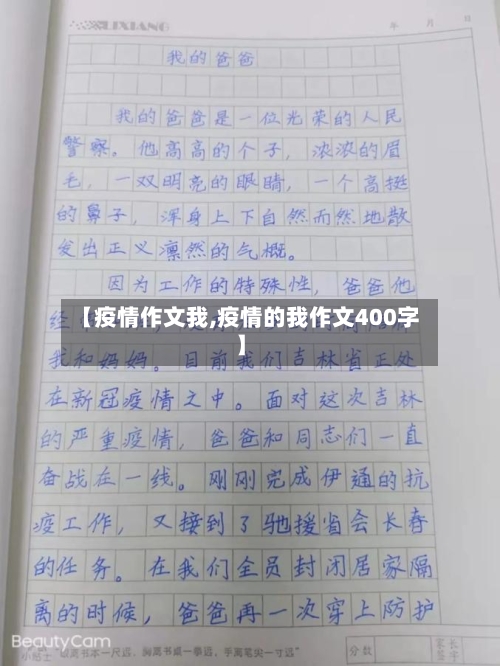 LIXIANG
年 月 日
我的爸爸
我的爸爸是一位光荣的人民
警察。他高高的个子,浓浓的眉
毛,一双明亮的眼睛,一个高挺
的鼻子,浑身上下自然而然地散
发出正义凛然的气概。
因为工作的特殊性,爸爸他
经
【疫情作文我,疫情的我作文400字
】
我和妈妈。目前我们吉林省正处
在新冠疫情之中。面对这次吉林
的严重疫情,爸爸和同志们一直
奋战在一线。刚刚完成伊通的抗
疫工作,又接到了驰援省会长春
的任务。在我们全员封闭居家隔
离的时候,爸爸再一次穿上防护
BeautyCam
小贴士 眼离书本一尺远,胸离书桌一拳远,手离笔尖一寸远
分数
家长
签字